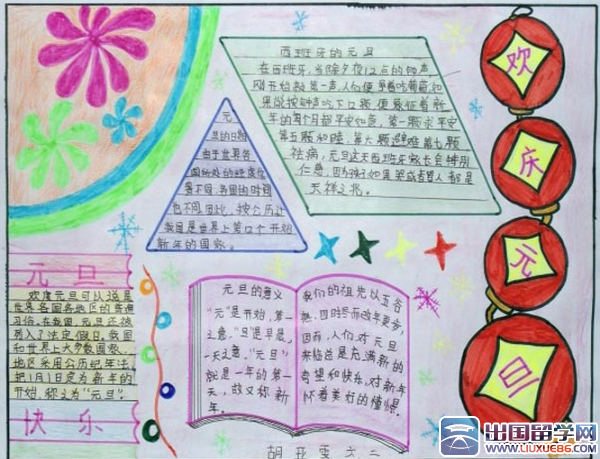 西班牙的元旦
在西班牙,当除夕夜12点的钟声
刚开始敲第一声,人们便争着吃葡萄,如
果能按钟声吃下12颗,便象征着新
年的每个月都平安如意,第一颗求平安
第五颗和睦,第六颗避难,第七颗
祛病,元旦这天西班牙家长会特别
仁慈,因为孩子如果哭或者骂人都是
不祥之兆。
元
旦的日期
由于世界各
国所处的经度位
置不同,各国的时间
也不同,因此,按公历计
我国是世界上第12个开始
新年的国家。
欢
庆
元
旦
元旦
欢度元旦可以说是
世界各国各地区的普遍
习俗。在我国,元旦还被
列入了法定假日,我国
和世界上大多数国家
地区采用公历纪年法,
把1月1日定为新年的
开始,称之为“元旦”。
快乐
元旦的意义
“元”是开始,第一
之意,“旦”是早晨,
一天之意,“元旦”
就是一年的第一
天,故又称新
年。
我们的祖先以五谷
熟,四时尽而岁年更易,
因而,人们对元旦
来临总是充满新的
希望和快乐,对新年
怀着美好的憧憬。
出国留学网
WWW.LIUXUE86.COM